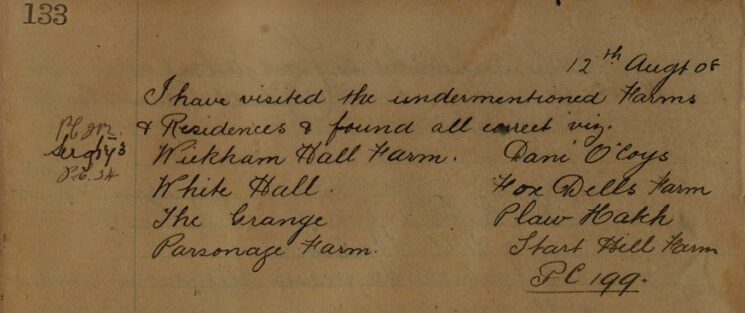 133
12th Augt 08
I have visited the undermentioned Farms
& Residences & found all correct viz.
Sergt 43
Wickham Hall Farm. Dani O'Coys
White Hall. Fox Dells Farm
The Grange Plaw Hakh
Parsonage Farm. Start Hill Farm
PC 199.